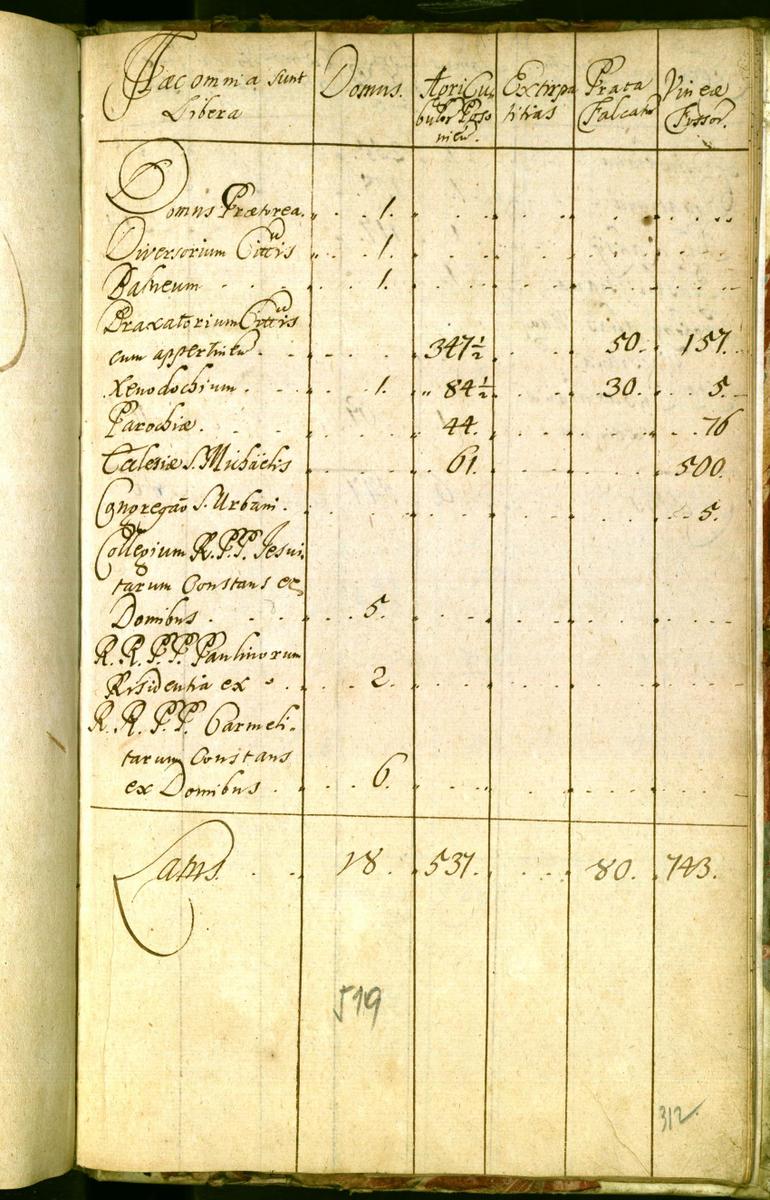 Hæc omnia sunt Libera Domus. Agri Cubulor Posonien. Extirpatitias Prata Falcator Vineæ Fossor.
Domus Prætorea. 1.
Diversorium Cittis 1.
Balneum 1.
Braxatorium Cittis
cum appertinen. 347½ 50. 157.
Xenodochium. 1. 84½ 30. 5.
Parochiæ. 44. 76
Ecclesiæ S. Michaelis 61. 500.
Congregaō S. Urbani. 5.
Collegium R.P.P. Jesui,
tarum Constans ex
Domibus. 5.
R.R.P.P. Paulinorum
Residentia ex 2.
R.R.P.P. Carmeli,
tarum Constans
ex Domibus. 6.
Latus. 18. 537. 80. 743.
519
312